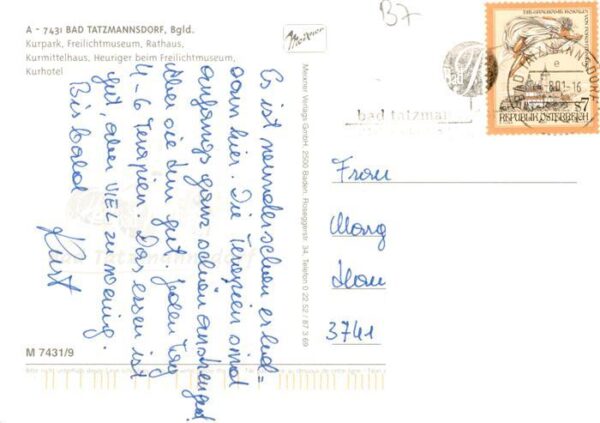 A - 7431 BAD TATZMANNSDORF, Bgld.
Kurpark, Freilichtmuseum, Rathaus,
Kurmittelhaus, Heuriger beim Freilichtmuseum,
Kurhotel
Es ist wunderschön erhol=
sam hier. Die Terapien sind
anfangs ganz schön anstrengend
aber die tun gut. jeden Tag
4-6 Terapien. Das essen ist
gut, aber VIEL zu wenig.
Bis bald
Kurt
M 7431/9
Mexner Verlags GmbH, 2500 Baden, Roseggerstr. 34, Telefon 0 22 52 / 87 3 69
B7
bad tatzman
BAD TATZMANNSDORF
REPUBLIK ÖSTERREICH
S7
Frau
3741